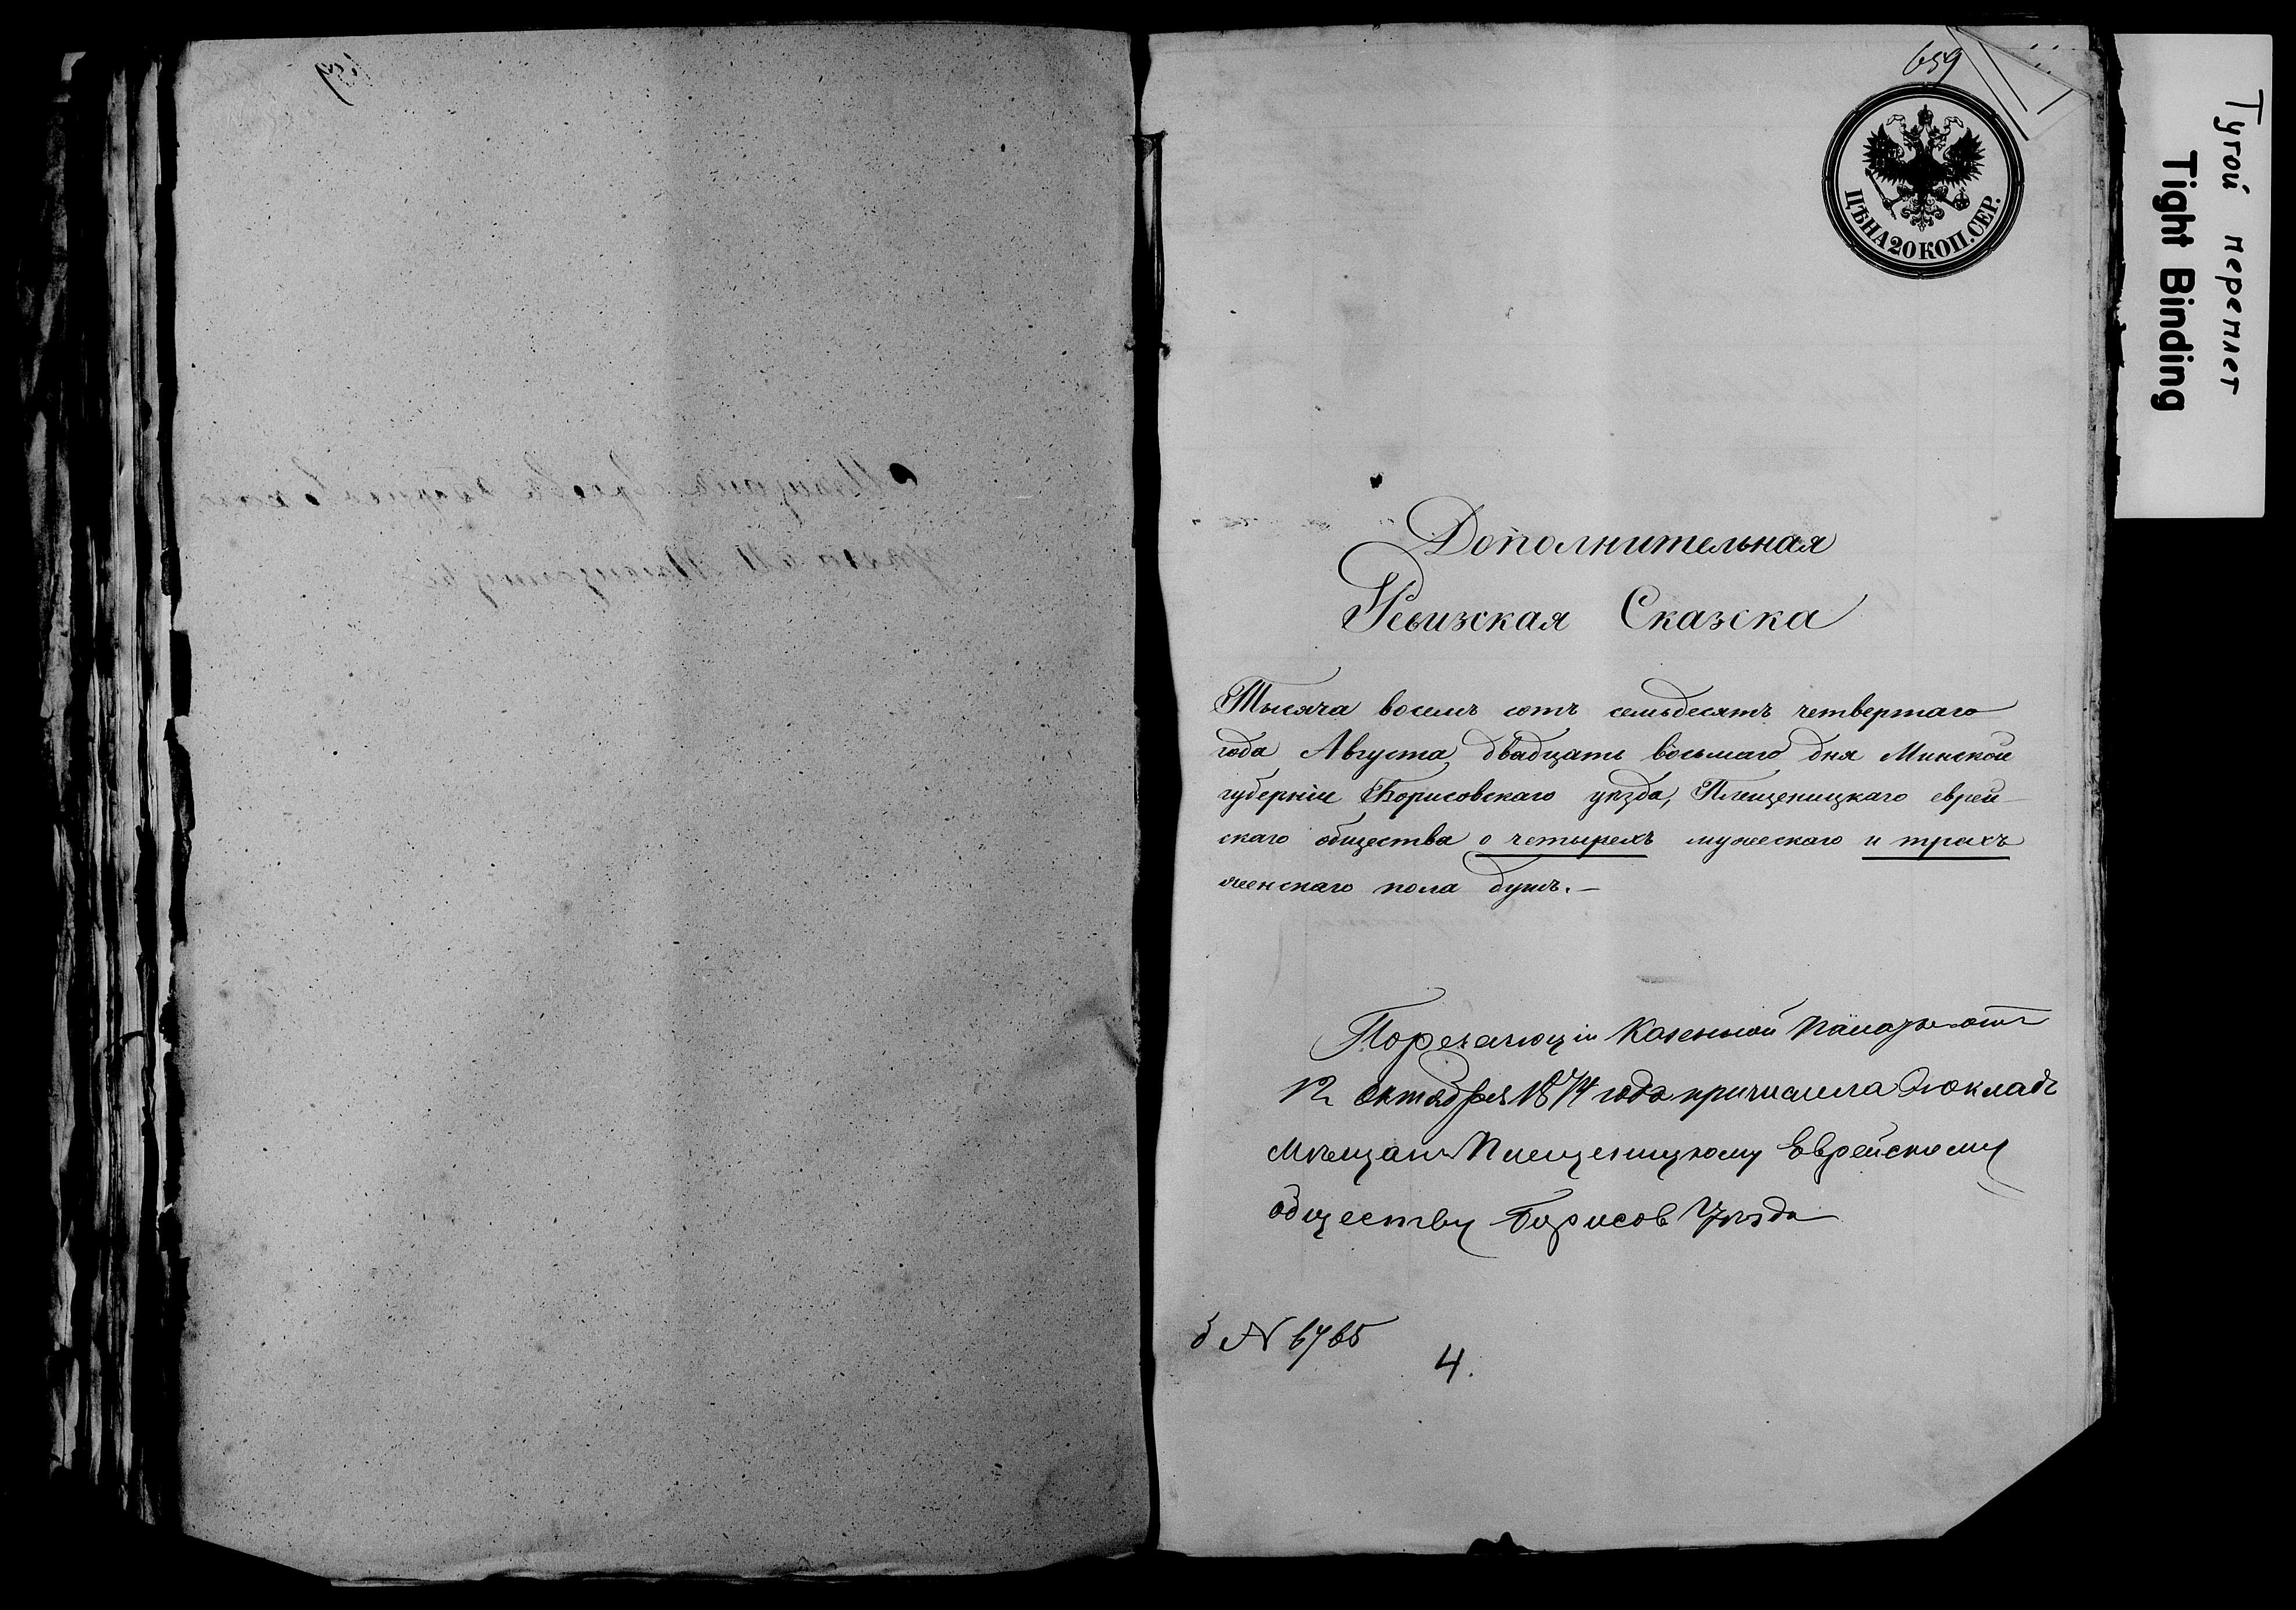 659
ЦѢНА 20 КОП. СЕР.
Тугой переплет
Tight Binding
Дополнительная
Ревизская Сказка
Тысяча восемь сотъ семьдесятъ четвертаго
года Августа двадцать восьмаго дня Минской
губерніи Борисовскаго уѣзда, Плещеницкаго еврей-
скаго общества о четырехъ мужескаго и трехъ
женскаго пола душъ.—
Казенной Палаты отъ
12 октября 1874 года причислена
Мѣщанъ Плещеницкому Еврейскому
обществу Борисов Уѣзда
№ 6765
4.